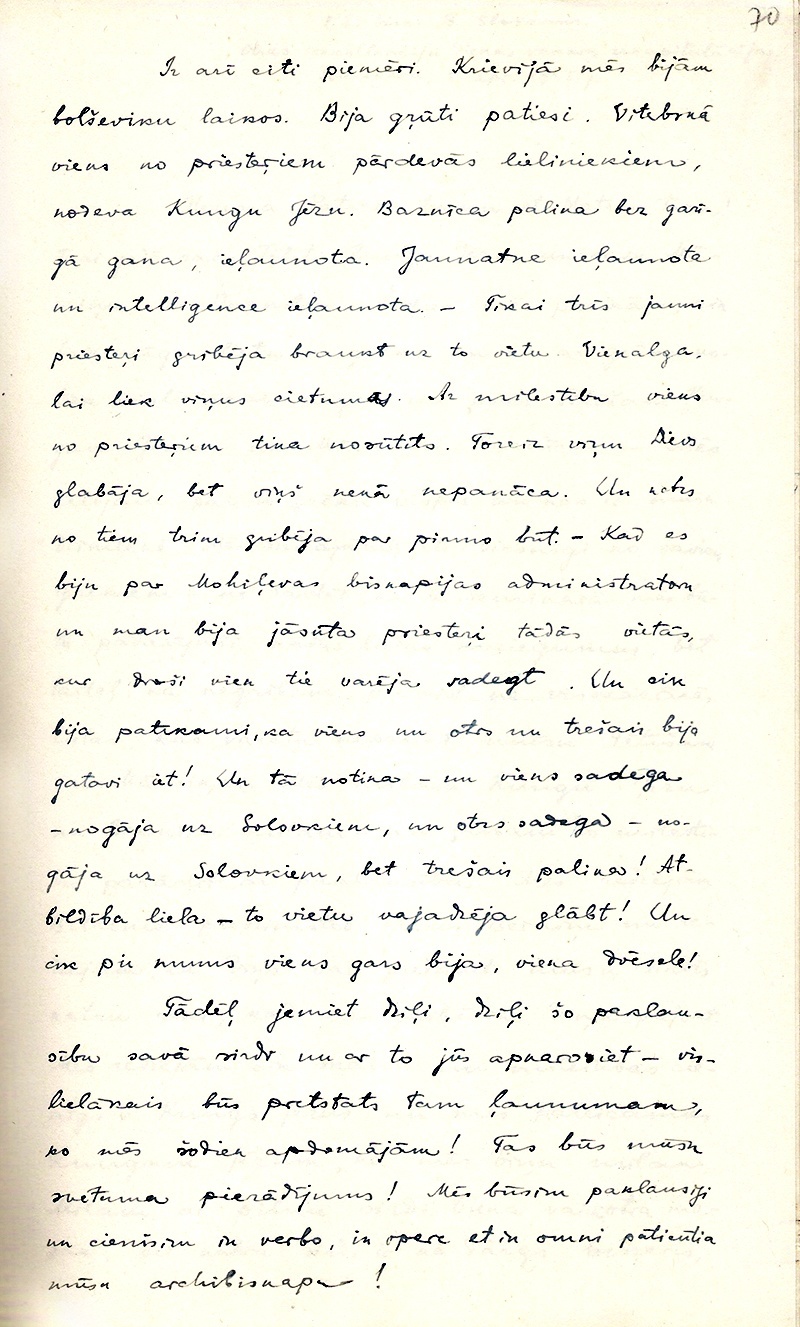 70
Ir arī citi piemēri. Krievijā mēs bijām
boļševiku laikos. Bija grūti patiesi. Vitebskā
viens no priesteŗiem pārdevās lieliniekiem,
nodeva Kungu Jēzu. Baznīca palika bez garī-
gā gana, ieļaunota. Jaunatne ieļaunota
un intelligence ieļaunota. – Tikai trīs jauni
priesteŗi gribēja braukt uz to vietu. Vienalga,
lai liek viņus cietumā. Ar milestību viens
no priesteŗiem tika nosūtīts. Toreiz viņu Dievs
glabāja, bet viņš nekā nepanāca. Un katrs
no tiem trim gribēja par pirmo būt. – Kad es
biju par Mohiļevas biskapijas administratoru
un man bija jāsūta priesteŗi tādās vietās,
kur droši vien tie varēja sadegt. Un cik
bija patīkami, ka viens un otrs un trešais bija
gatavi iet! Un tā notika – un viens sadega
– nogāja uz Solovkiem, un otrs sadega – no-
gāja uz Solovkiem, bet trešais palika! At-
bildība liela – to vietu vajadzēja glābt! Un
cik pie mums viens gars bija, viena dvēsele!
Tādēļ jemiet dziļi, dziļi šo paklau-
sību savā sirdī un ar to jūs apkarosiet – vis-
lielākais būs pretstats tam ļaunumam,
ko mēs šodien apdomājām! Tas būs mūsu
svētuma pierādījums! Mēs būsim paklausīgi
un cienīsim in verbo, in opere et in omni patientia
mūsu archibiskapu!